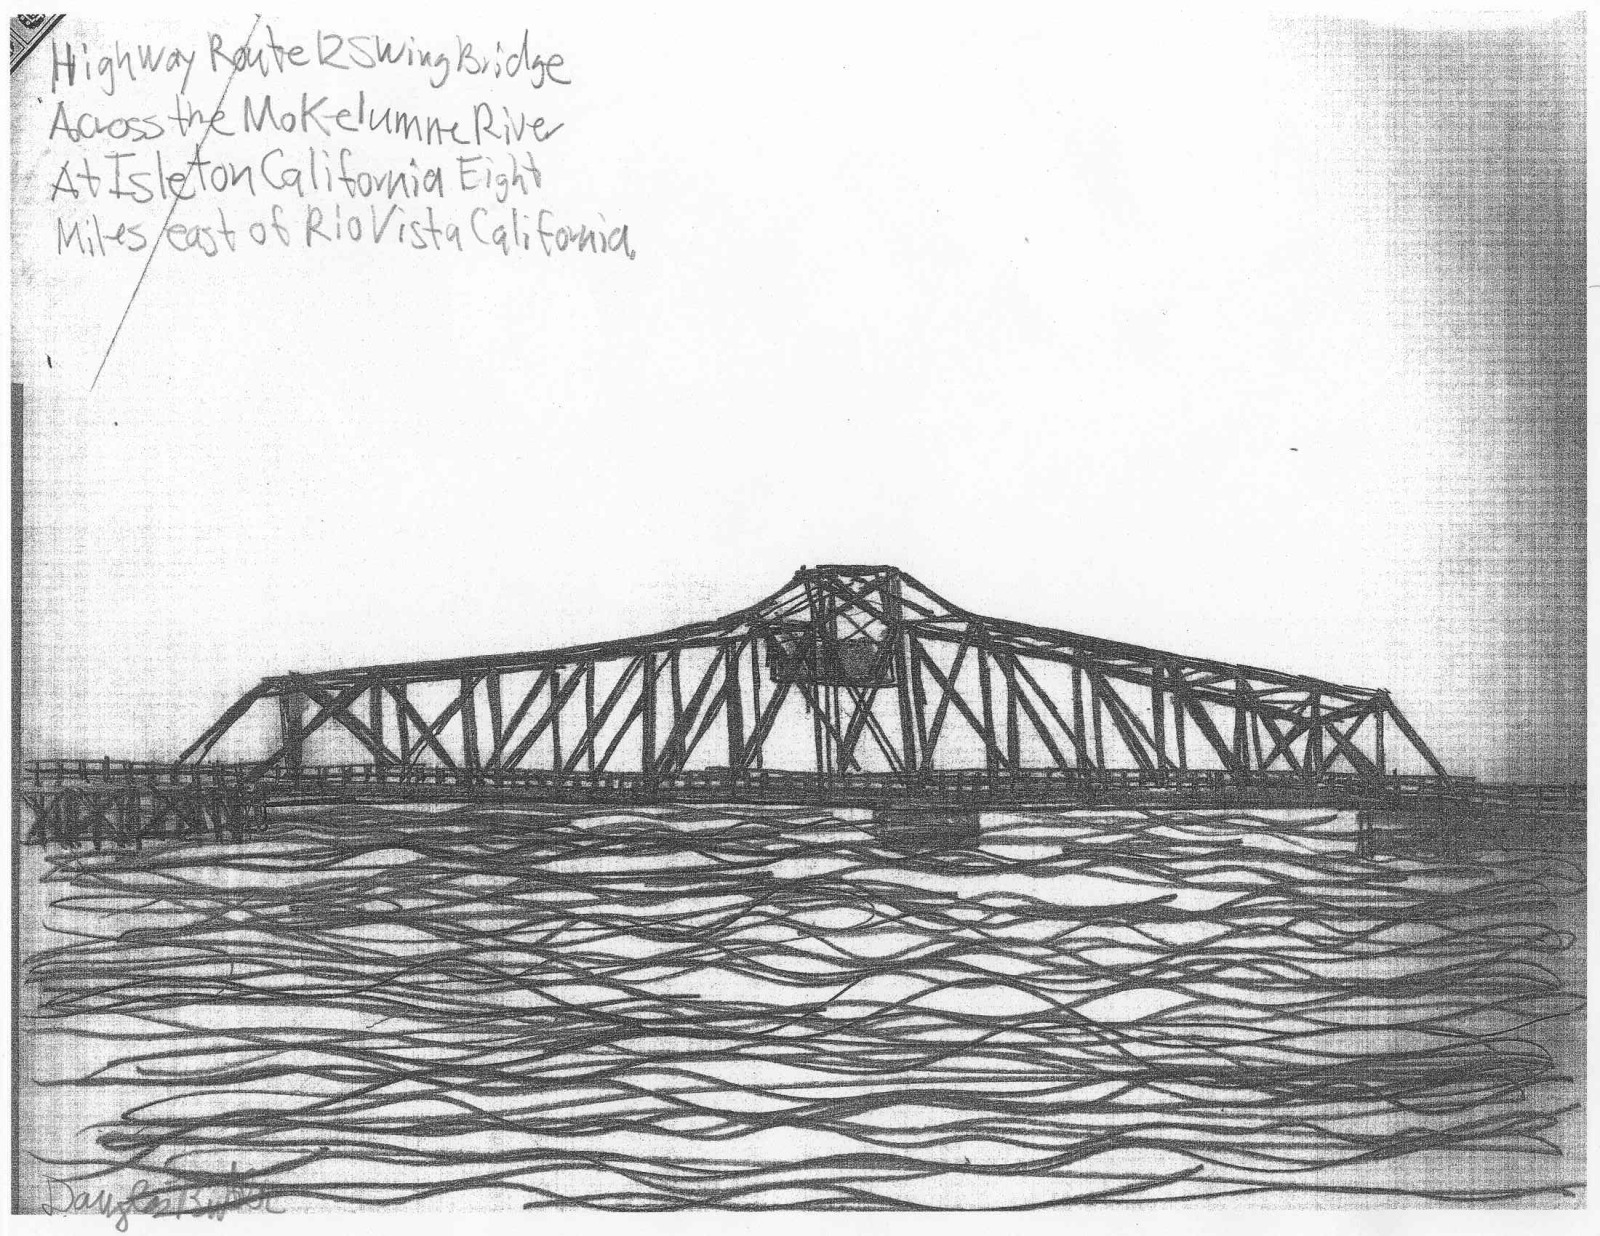 Highway Route 12 Swing Bridge
Across the Mokelumne River
At Isleton California Eight
Miles east of Rio Vista California.
Douglas